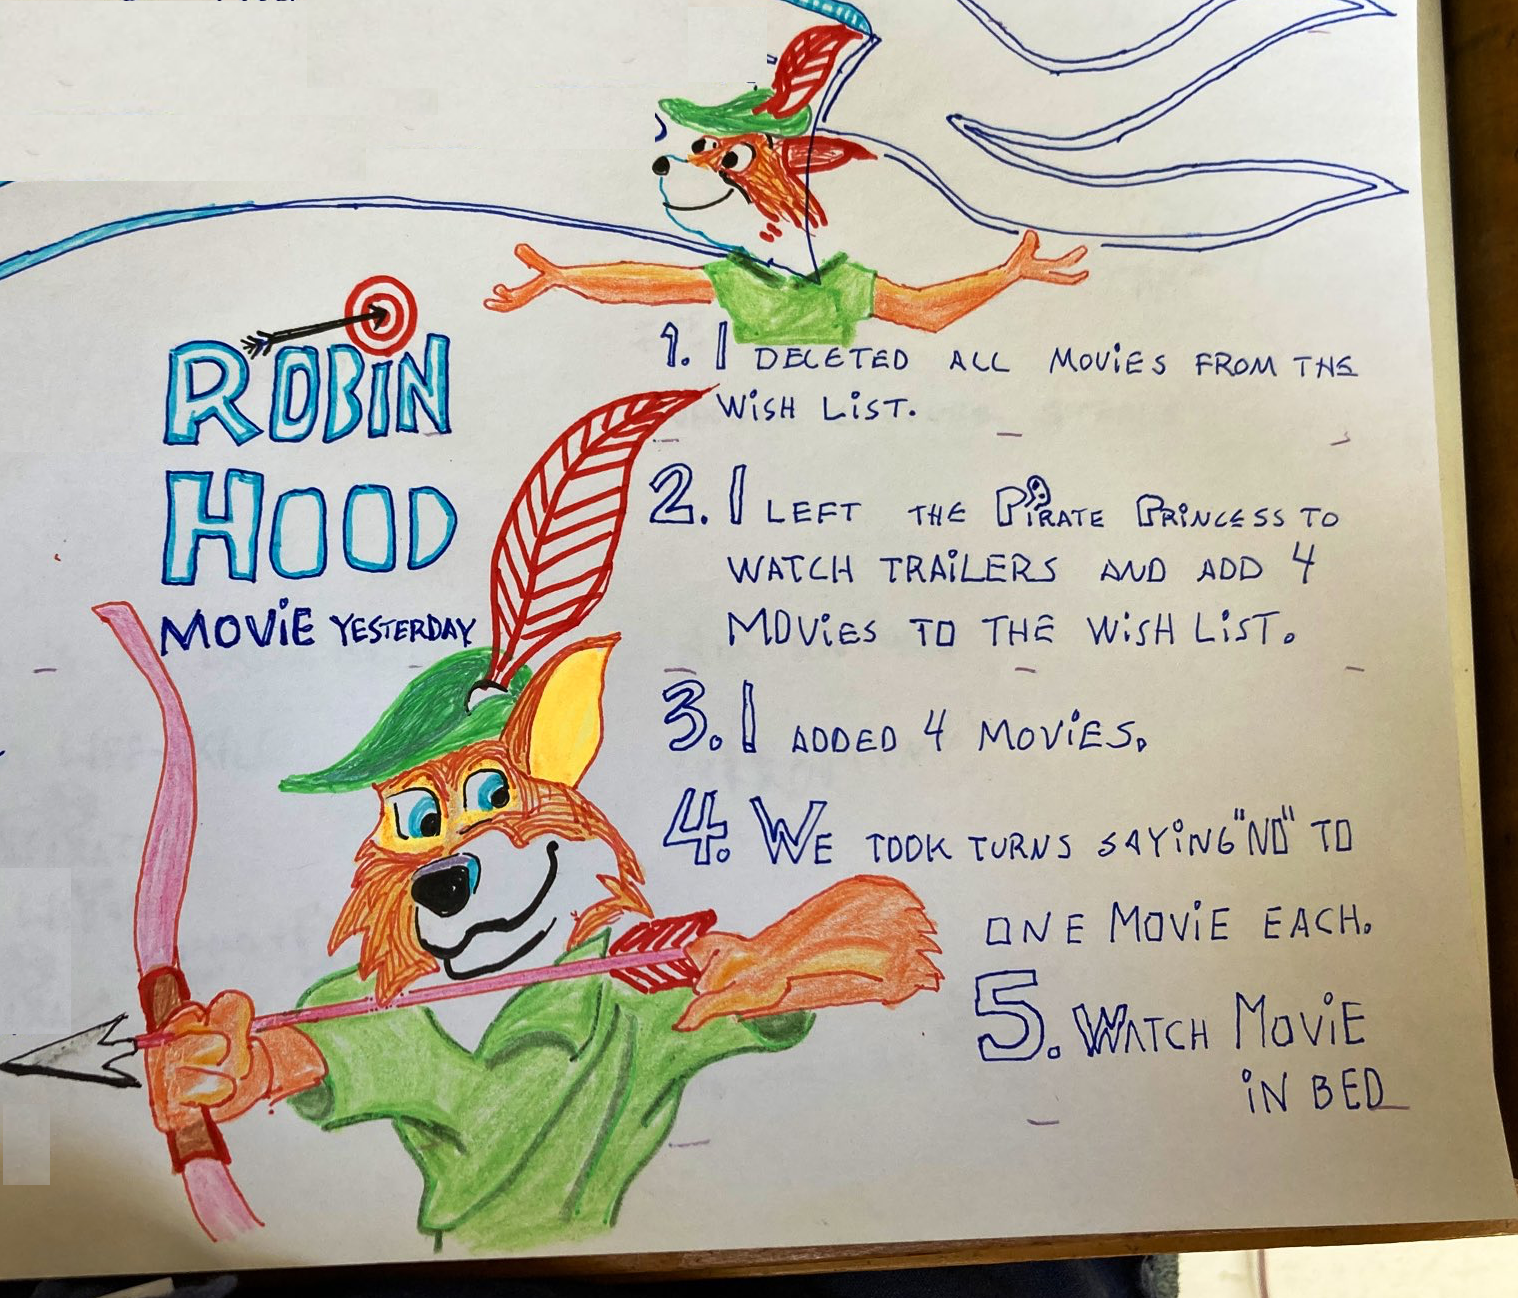 ROBIN
HOOD
MOVIE YESTERDAY
1. I DELETED ALL MOVIES FROM THE
WISH LIST.
2. I LEFT THE PIRATE PRINCESS TO
WATCH TRAILERS AND ADD 4
MOVIES TO THE WISH LIST.
3. I ADDED 4 MOVIES.
4. WE TOOK TURNS SAYING "NO" TO
ONE MOVIE EACH.
5. WATCH MOVIE
IN BED